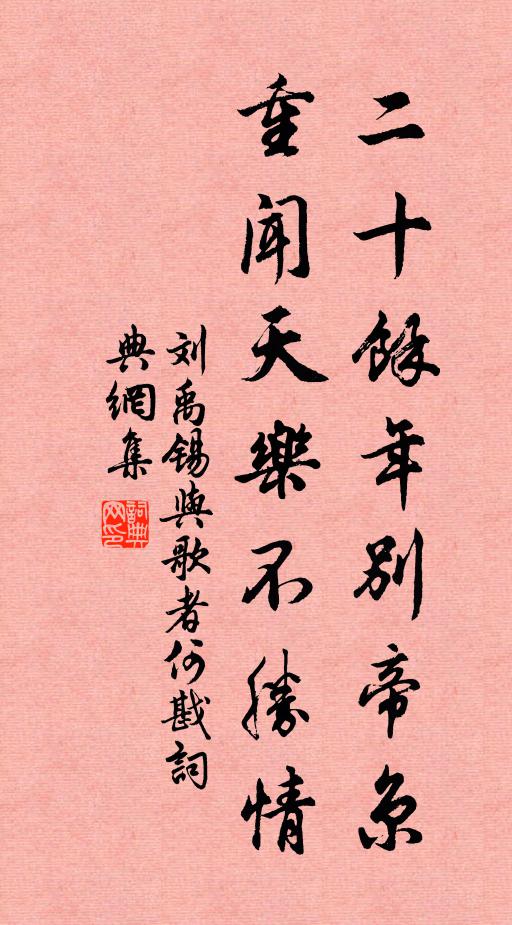 二十餘年別帝京
重聞天樂不勝情
刘禹錫與歌者何戡詞
典網集
詞典网印